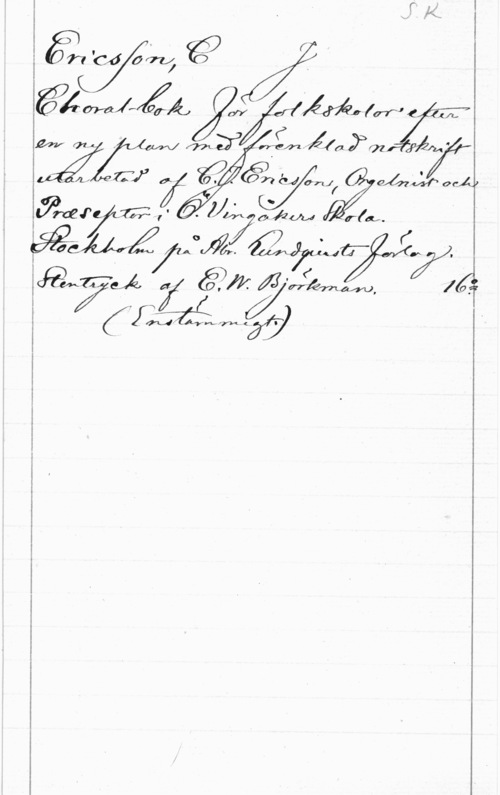 S.K
Ericsson, C J
Choral-bok för folkskolor efter
en ny plan med förenklad notskrift
utarbetad af C. J. Ericsson, Orgelnist och
Præseptor i Ö. Vingåkers Skola.
Stockholm på Abr. Lundquists förlag.
Stentryck af C. W. Björkman. 16:o
(Enstämmigt)